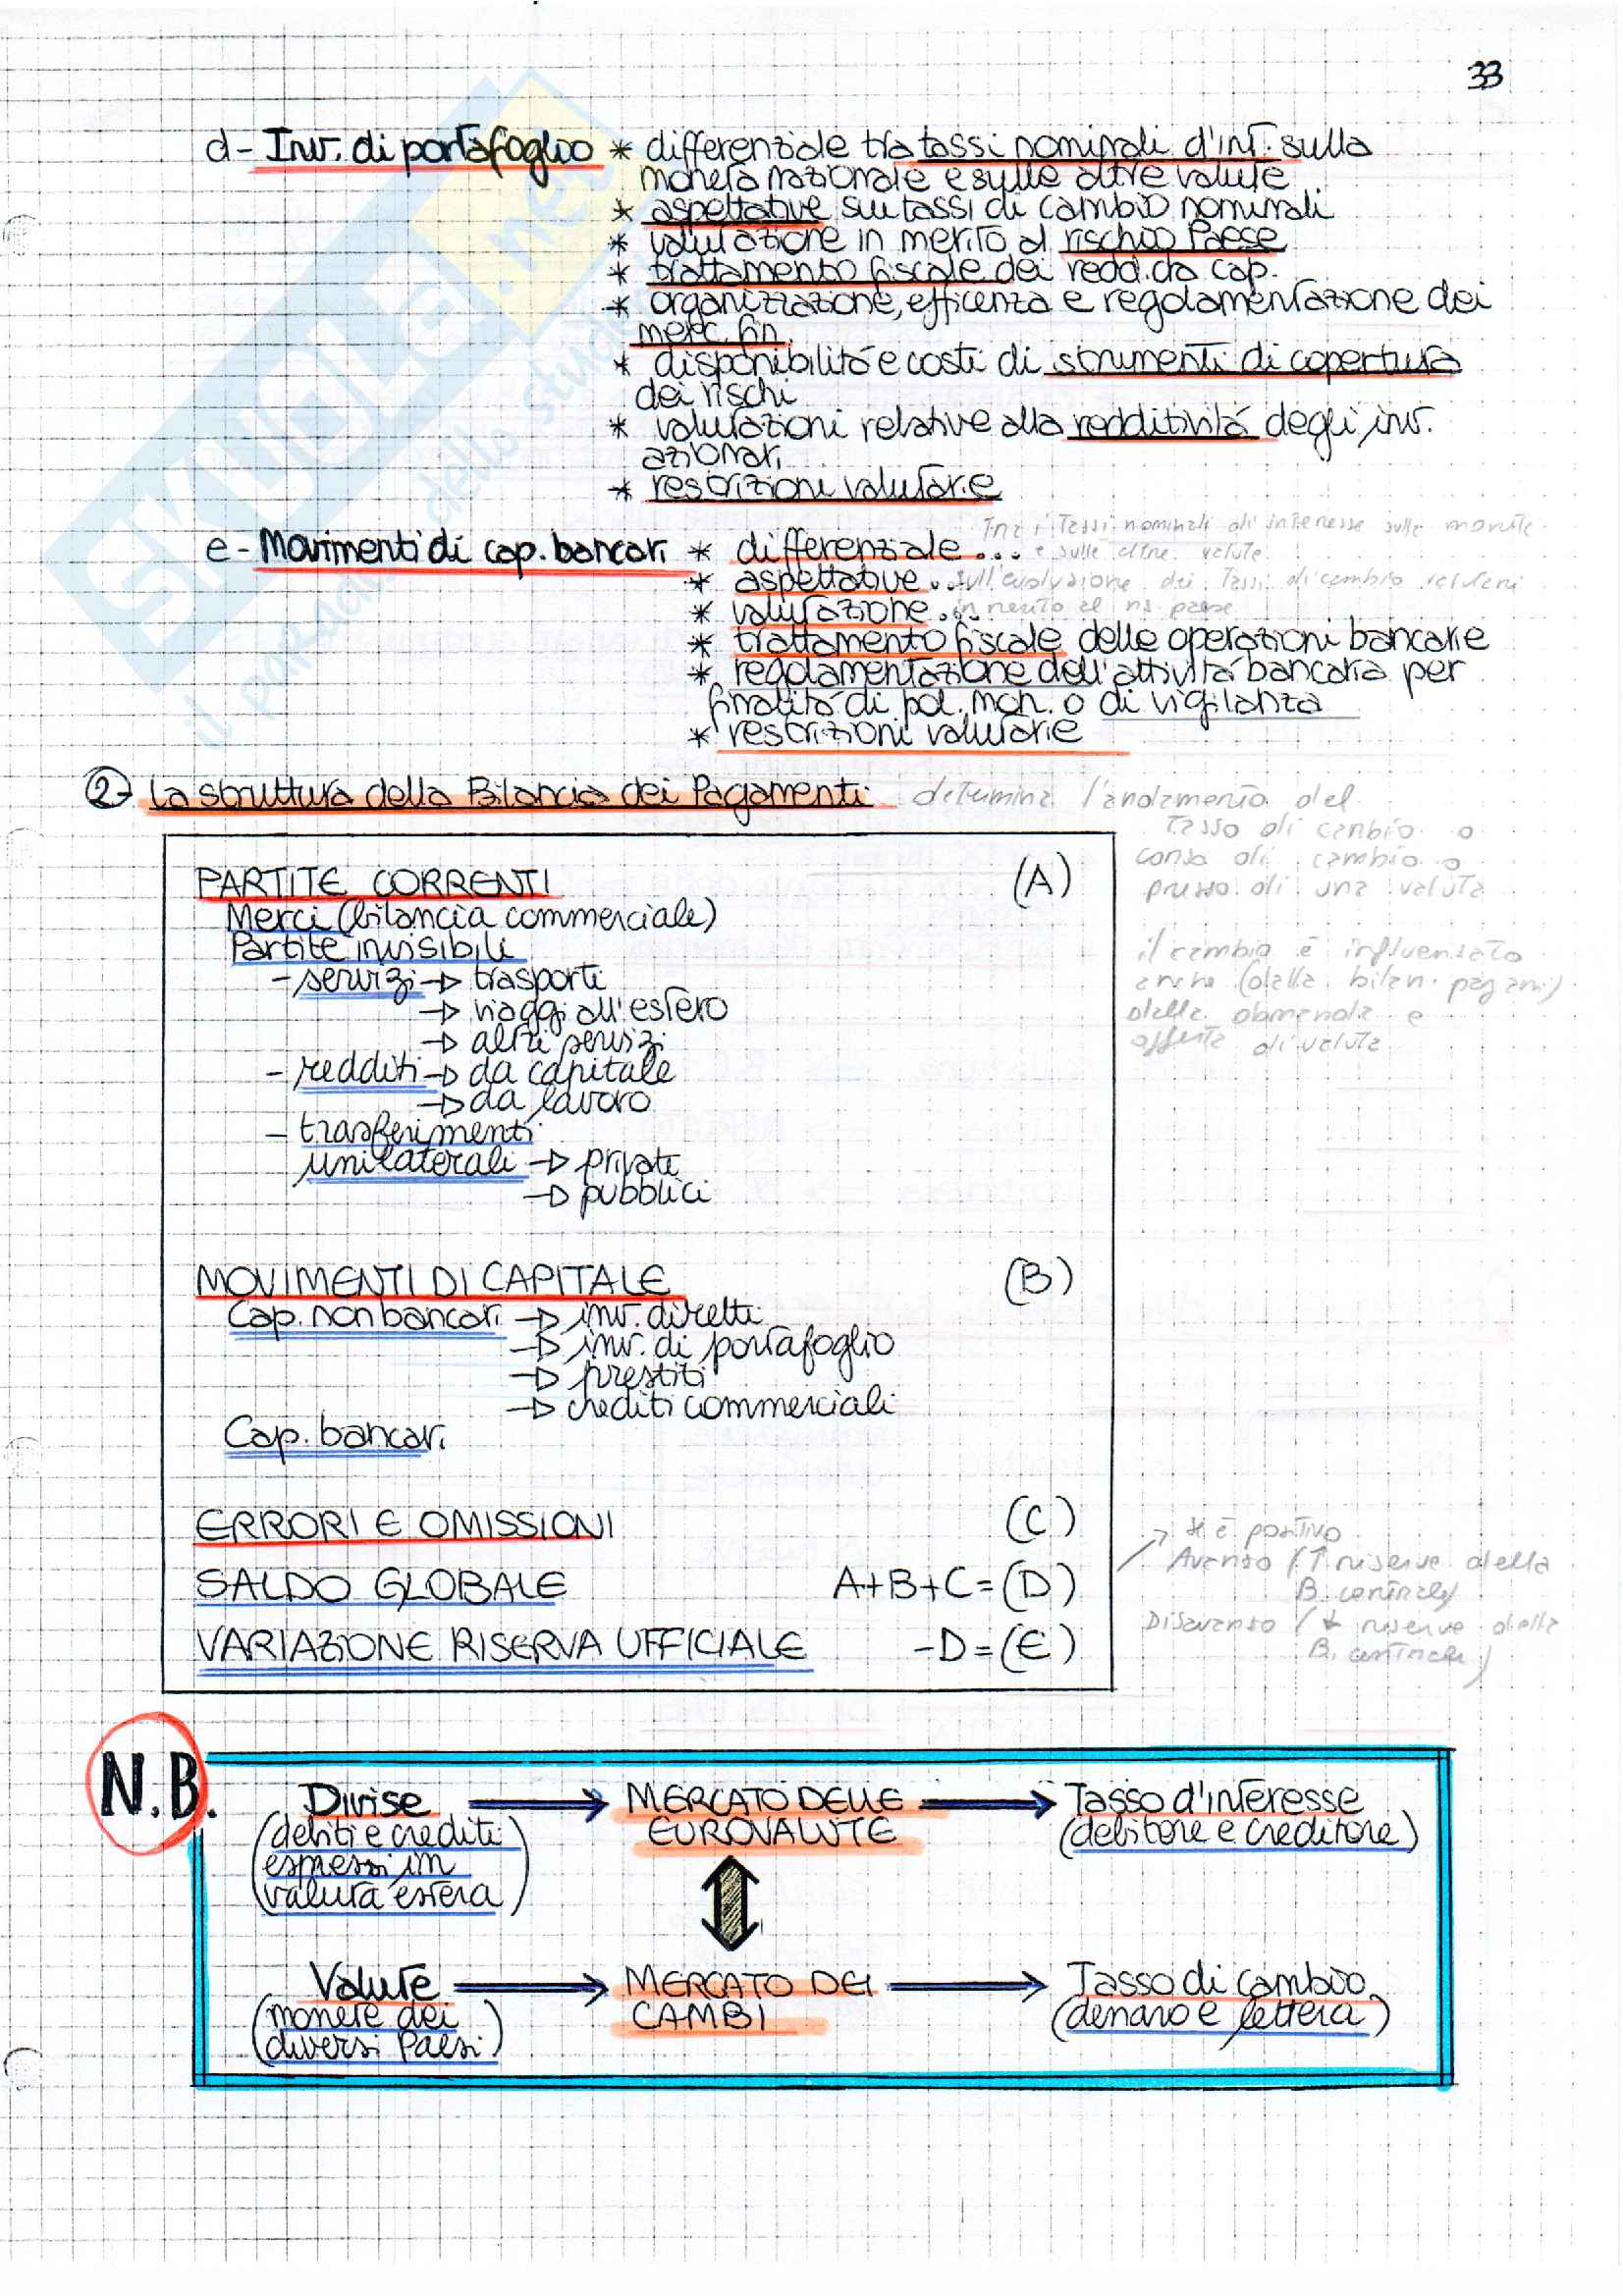 33
d- Inv. di portafoglio * differenziale tra tassi nominali d'int. sulla
moneta nazionale e sulle altre valute
* aspettative sui tassi di cambio nominali
* valutazione in merito al rischio Paese
* trattamento fiscale dei redd. da cap.
* organizzazione, efficenza e regolamentazione dei
merc. fin.
* disponibilitá e costi di strumenti di copertura
dei rischi
* valutazioni relative alla redditivitá degli inv.
azionari
* restrizioni valutarie
tra i tassi nominali di interesse sulle monete
e- Movimenti di cap. bancari * differenziale ... e sulle altre valute
* aspettative ... sull'evoluzione dei tassi di cambio
* valutazione ... in merito al paese
* trattamento fiscale delle operazioni bancarie
* regolamentazione dell'attivitá bancaria per
finalitá di pol. mon. o di vigilanza
* restrizioni valutarie
2- La struttura della Bilancia dei Pagamenti determina l'andamento del
tasso di cambio o
corso di cambio o
prezzo di una valuta
PARTITE CORRENTI (A)
Merci (bilancia commerciale)
Partite invisibili
- servizi → trasporti
→ viaggi all'estero
→ altri servizi
- redditi → da capitale
→ da lavoro
- trasferimenti
unilaterali → privati
→ pubblici
il cambio é influenzato
anche (dalla bilan. pagam)
dalla domanda e
offerta di valuta
MOVIMENTI DI CAPITALE (B)
Cap. non bancari → inv. diretti
→ inv. di portafoglio
→ prestiti
→ crediti commerciali
Cap. bancari
ERRORI E OMISSIONI (C)
SALDO GLOBALE A+B+C = (D)
VARIAZIONE RISERVA UFFICIALE -D = (E)
se é positivo
Avanzo (↑ riserve della
B. centrale)
Disavanzo (↓ riserve della
B. centrale)
N.B.
Divise → MERCATO DELLE → Tasso d'interesse
(debiti e crediti EUROVALUTE (debitore e creditore)
espressi in
valuta estera)
Valute → MERCATO DEI → Tasso di cambio
(monete dei CAMBI (denaro e lettera)
diversi Paesi)
SKUOLA.net
il paradiso dello studente